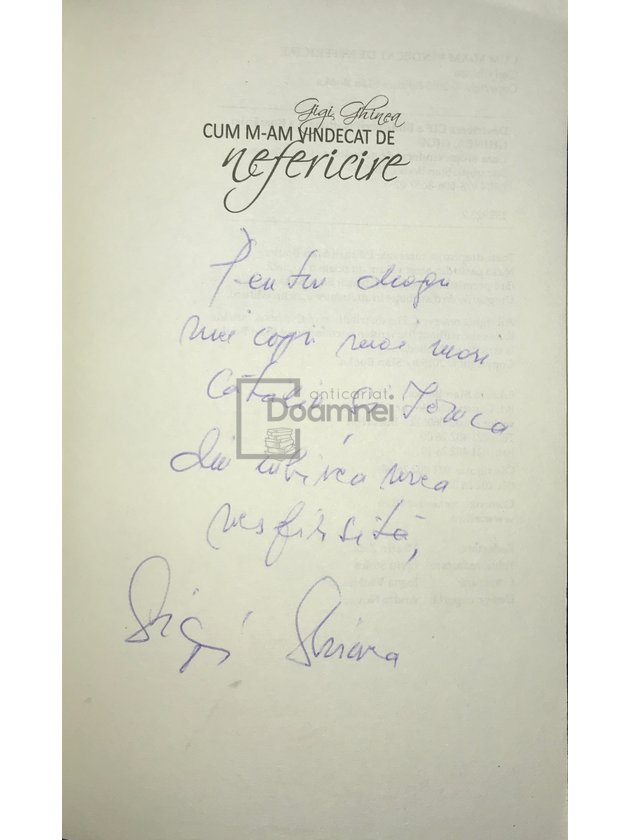 Gigi Ghinea
CUM M-AM VINDECAT DE
nefericire
Pentru dragii
mei copii mai mari
Cătălin și Ionica
din iubirea mea
nesfîrsită,
Gigi Ghinea
anticariat
Doamnei